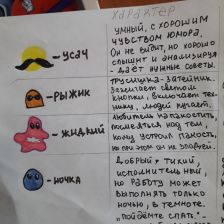 ХАРАКТЕР
- УСАЧ
УМНЫЙ, С ХОРОШИМ
ЧУВСТВОМ ЮМОРА.
ОН НЕ ВИДИТ, НО ХОРОШО
СЛЫШИТ И АНАЛИЗИРУЯ
- ДАЁТ НУЖНЫЕ СОВЕТЫ.
- РЫЖИК
ТРУСИШКА - ЗАТЕЙНИК.
ЗАЖИГАЕТ СВЕТОМ
КНОПКИ, ВКЛЮЧАЕТ ТЕХ-
НИКУ, ЛЮДЕЙ ПУГАЕТ.
- ЖИДКИЙ
ЛЮБИТЕЛЬ НАПАКОСТИТЬ,
ПОСМЕЯТЬСЯ НАД ТЕМ,
КОМУ УСТРОИЛ ПАКОСТЬ,
НО ПРИ ЭТОМ ОН НЕ
- НОЧКА
ДОБРЫЙ, ТИХИЙ,
ИСПОЛНИТЕЛЬНЫЙ,
НО РАБОТУ МОЖЕТ
ВЫПОЛНЯТЬ ТОЛЬКО
НОЧЬЮ, В ТЕМНОТЕ.
"ПОЙДЁМТЕ СПАТЬ".